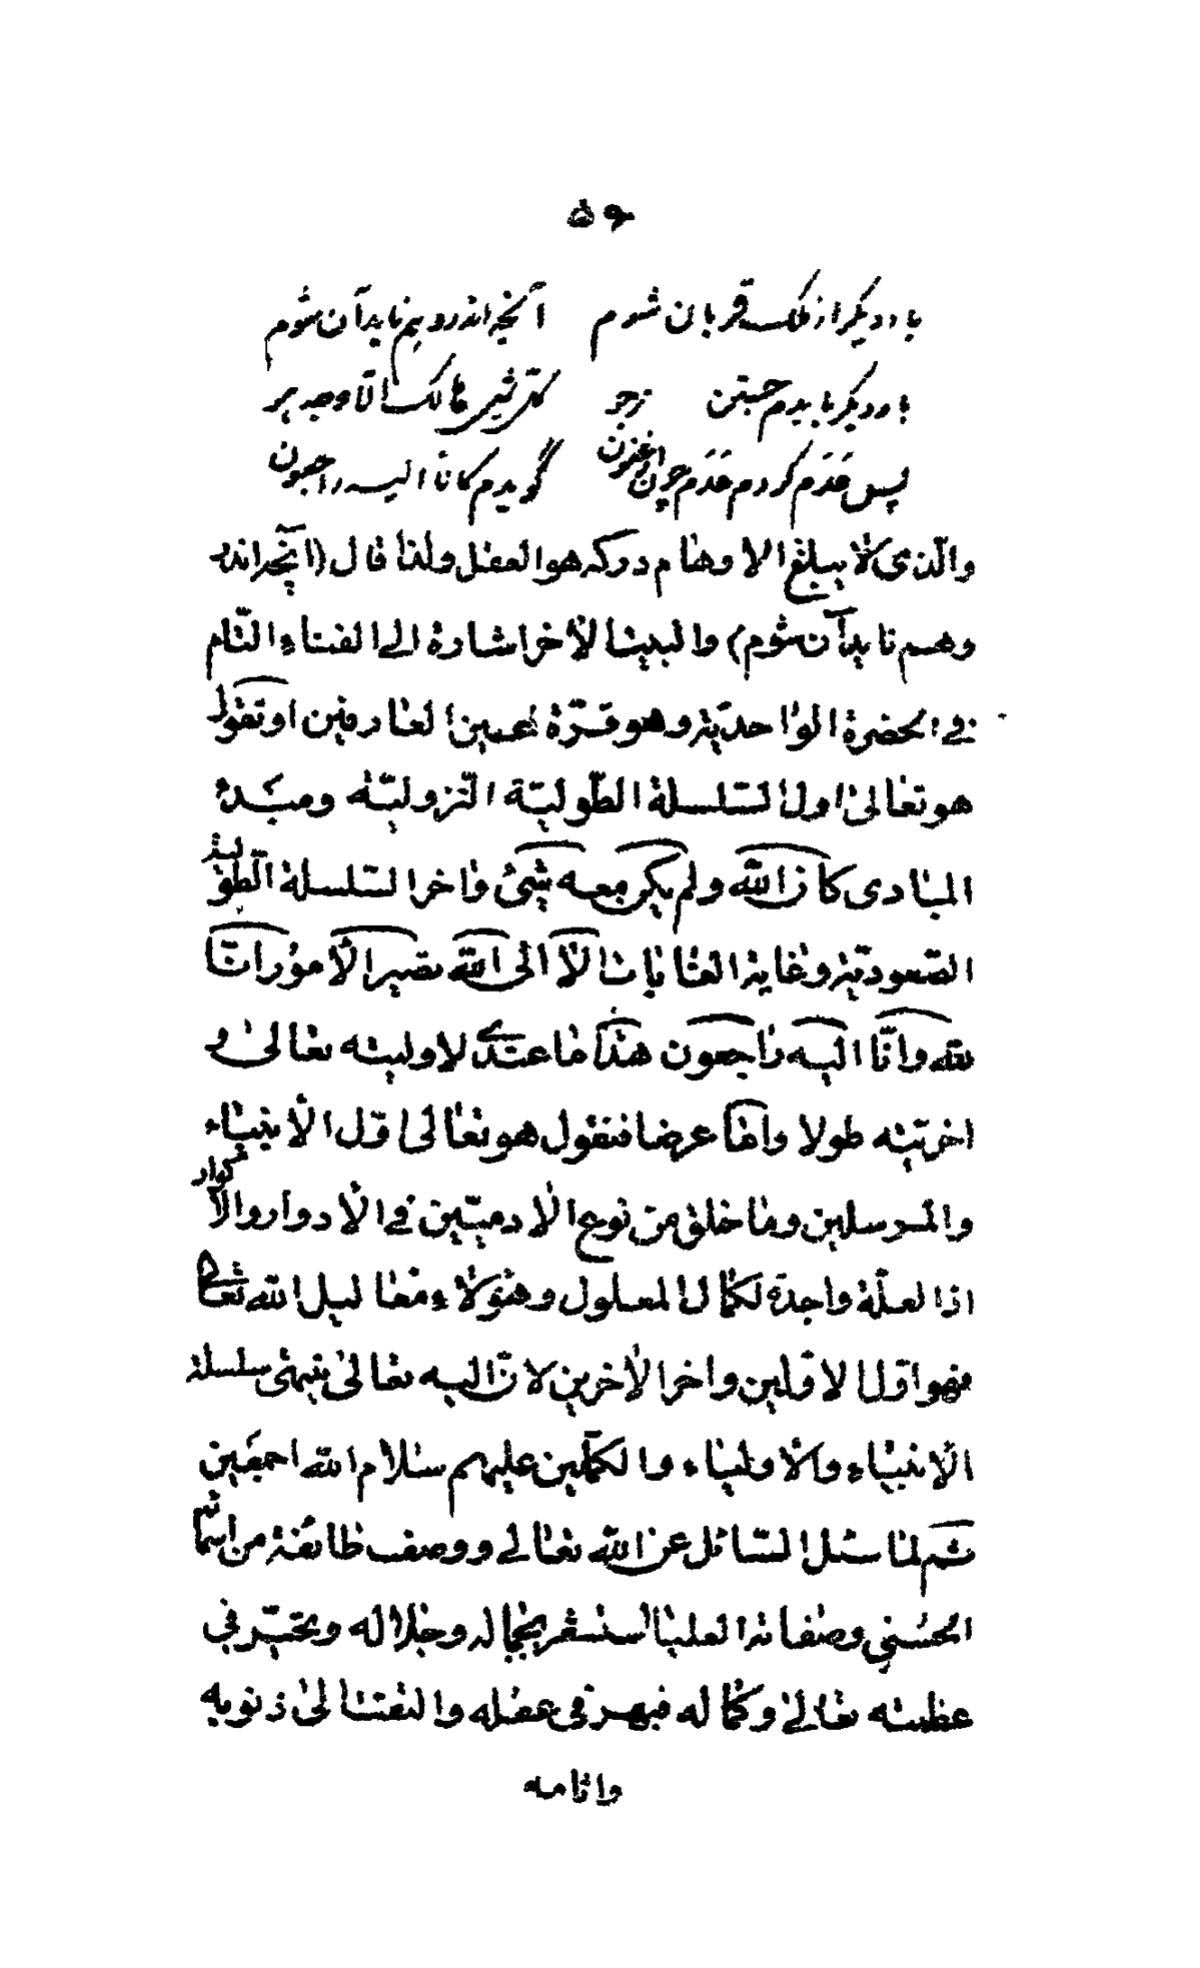 ٥٦
بار دیگر از ملک قربان شوم آنچه اندر وهم ناید آن شوم
بار دیگر بایدم جستن ز جو کل شیء هالک الا وجهه
پس عدم گردم عدم چون ارغنون گویدم کانا الیه راجعون
والّذی لا یبلغ الاوهام درکه هو العقل ولذا قال (آنچه اندر
وهم ناید آن شوم) والبیت الأخر اشارة الی الفناء التّام
فی الحضرة الواحدیّة وهو قرّة لعین العارفین او تقول
هو تعالی اول السّلسلة الطّولیّة النّزولیّة ومبدء
المبادی کان الله ولم یکن معه شیئ واخر السّلسلة الطّولیة
الصّعودیّة وغایة الغایات الا الی الله تصیر الأمور انّا
لله وانّا الیه راجعون هذا ما عندی لاولیته تعالی و
اخریّته طولا وامّا عرضا فنقول هو تعالی اوّل الأنبیاء
والمرسلین وما خلق من نوع الادمیّین فی الأدوار والاکوار
اذ العلّة واجدة لکمال المعلول وهؤلاء مغالیل الله تعالی
فهو اوّل الاوّلین واخر الأخرین لانّ الیه تعالی ینتهی سلسلة
الأنبیاء والأولیاء والکمّلین علیهم سلام الله اجمعین
ثم لما سئل السّائل عن الله تعالی ووصف طائفة من اسمائه
الحسنی وصفاته العلیا استشعر بجماله وجلاله وتحیّر فی
عظمته تعالی وکماله فبهر فی عقله والتفت الی ذنوبه
واثامه